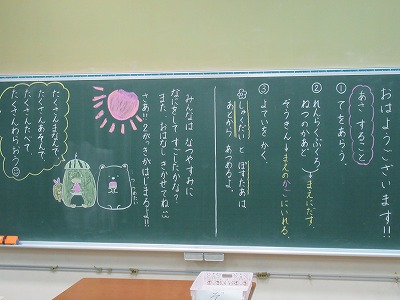 おはようございます!!
あさ すること
① てをあらう。
② れんらくぶくろ
ねつのかあど
→まえにだす。
ぞうきん→まえのかごにいれる。
③ よていを かく。
しゅくだい と ぽすたあは
あとから あつめるよ。
みんなは なつやすみに
なにをして すごしたかな?
また、おはなしきかせてね
さあ!!2がっきがはじまるよ!!
たくさんまなんで、
たくさんあそんで、
たくさんたべて
たくさんわらおう